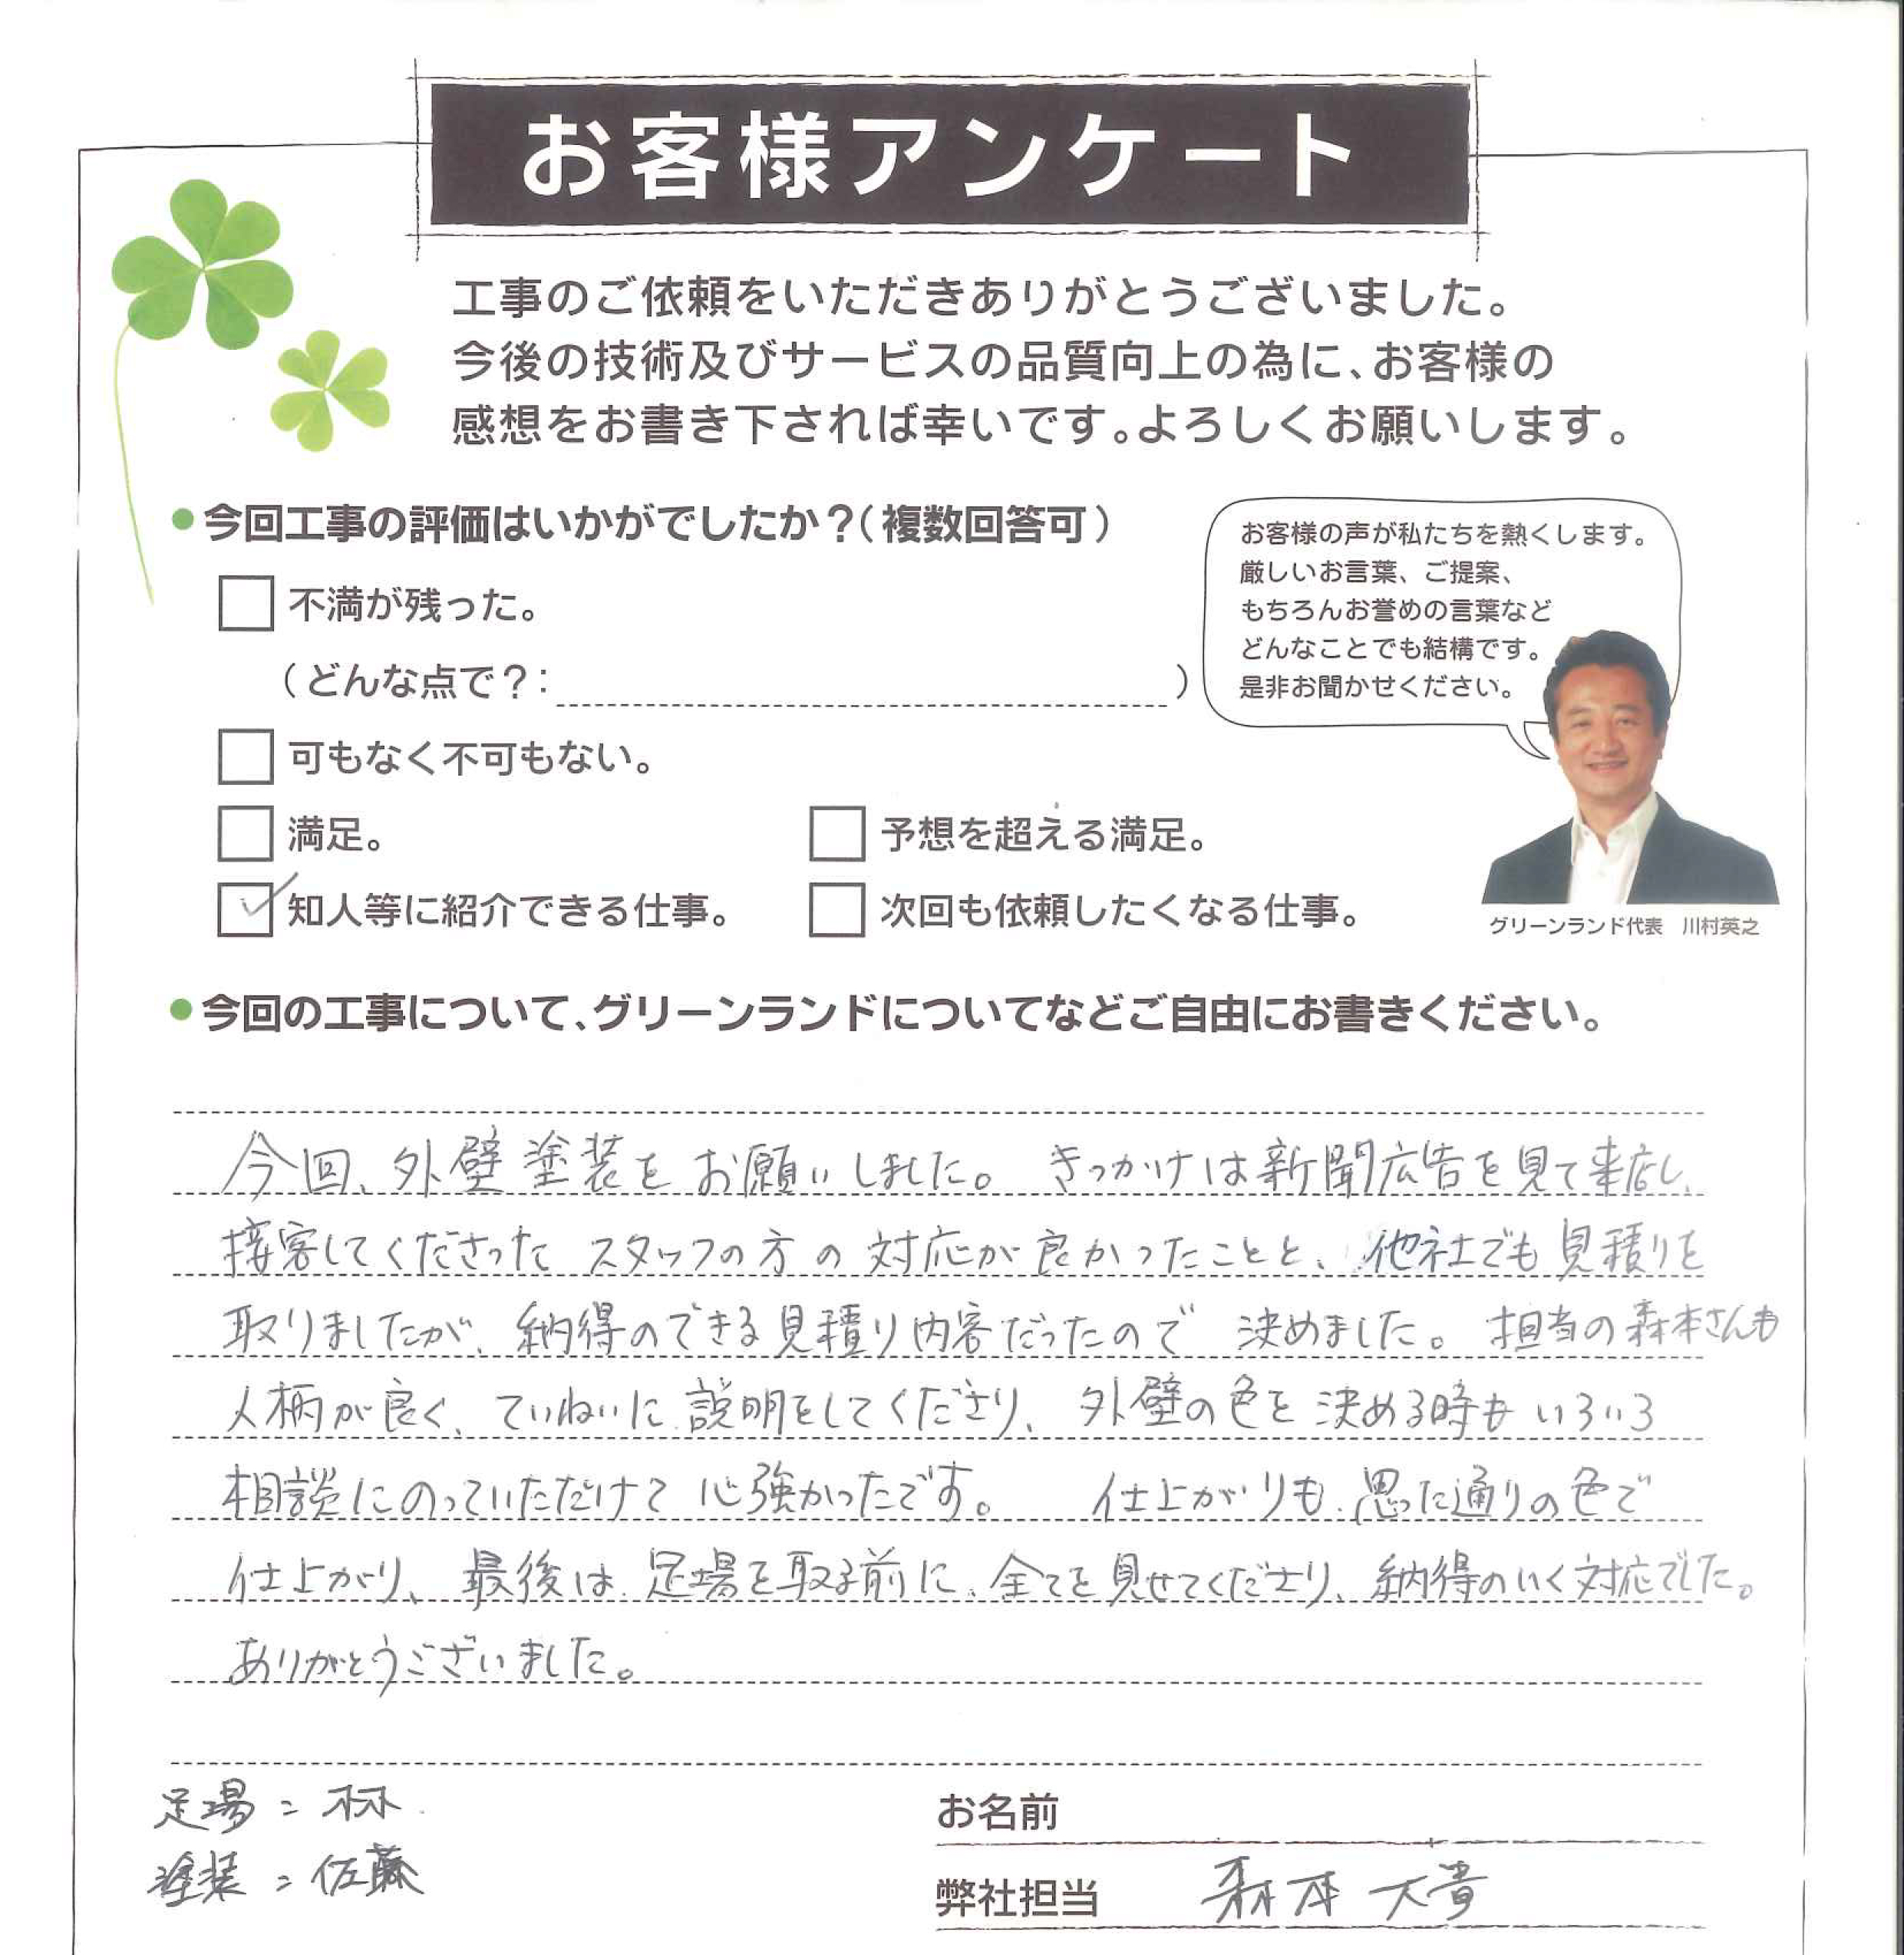 お客様アンケート
工事のご依頼をいただきありがとうございました。
今後の技術及びサービスの品質向上の為に、お客様の
感想をお書き下されば幸いです。よろしくお願いします。
●今回工事の評価はいかがでしたか？（複数回答可）
不満が残った。
（どんな点で？：　　　）
可もなく不可もない。
満足。
予想を超える満足。
知人等に紹介できる仕事。
次回も依頼したくなる仕事。
お客様の声が私たちを熱くします。
厳しいお言葉、ご提案、
もちろんお誉めの言葉など
どんなことでも結構です。
是非お聞かせください。
グリーンランド代表　川村英之
●今回の工事について、グリーンランドについてなどご自由にお書きください。
今回、外壁塗装をお願いしました。きっかけは新聞広告を見て来店し、
接客してくださった スタッフの方の対応が良かったことと、他社でも見積りを
取りましたが、納得のできる見積り内容だったので 決めました。担当の森本さんも
人柄が良く、ていねいに説明をしてくださり、外壁の色を決める時もいろいろ
相談にのっていただけて心強かったです。　仕上がりも、思った通りの色で
仕上がり、最後は、足場を取る前に、全てを見せてくださり、納得のいく対応でした。
ありがとうございました。
足場＝林
塗装＝佐藤
お名前
弊社担当　森本 大貴